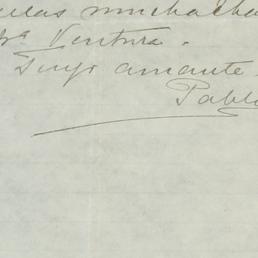 muchacha
Ventura.
Tuyo amante
Pablo